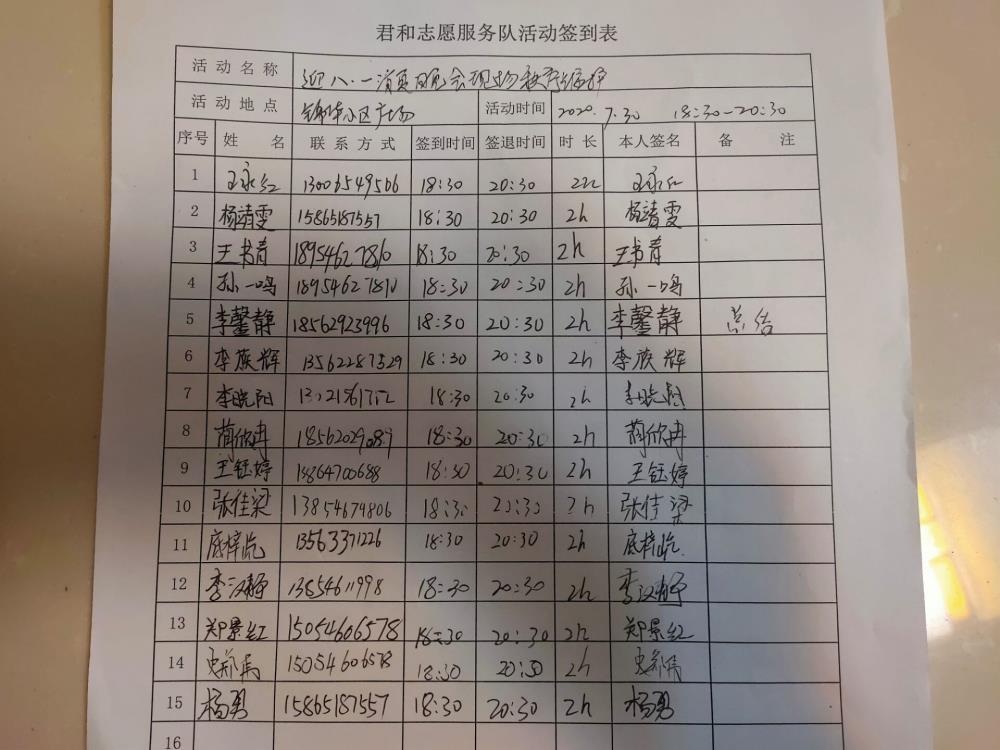 君和志愿服务队活动签到表
活动名称 迎八·一消夏晚会现场秩序维护
活动地点 锦华小区广场 活动时间 2020.7.30 18:30-20:30
序号 姓名 联系方式 签到时间 签退时间 时长 本人签名 备注
1 王永红 13006549566 18:30 20:30 2h 王永红
2 杨靖雯 15865187557 18:30 20:30 2h 杨靖雯
3 王书青 18954627810 18:30 20:30 2h 王书青
4 孙一鸣 18954627810 18:30 20:30 2h 孙一鸣
5 李馨静 18562923996 18:30 20:30 2h 李馨静 总结
6 李族辉 13562287529 18:30 20:30 2h 李族辉
7 李晓阳 18:30 20:30 2h 李晓阳
8 蔺欣冉 18562029089 18:30 20:30 2h 蔺欣冉
9 王钰婷 13864700688 18:30 20:30 2h 王钰婷
10 张佳梁 13854679806 18:30 20:30 2h 张佳梁
11 13563371226 18:30 20:30 2h
12 李汉静 13854611998 18:30 20:30 2h 李汉静
13 郑景红 15054606578 18:30 20:30 2h 郑景红
14 15054606578 18:30 20:30 2h
15 杨勇 15865187557 18:30 20:30 2h 杨勇
16